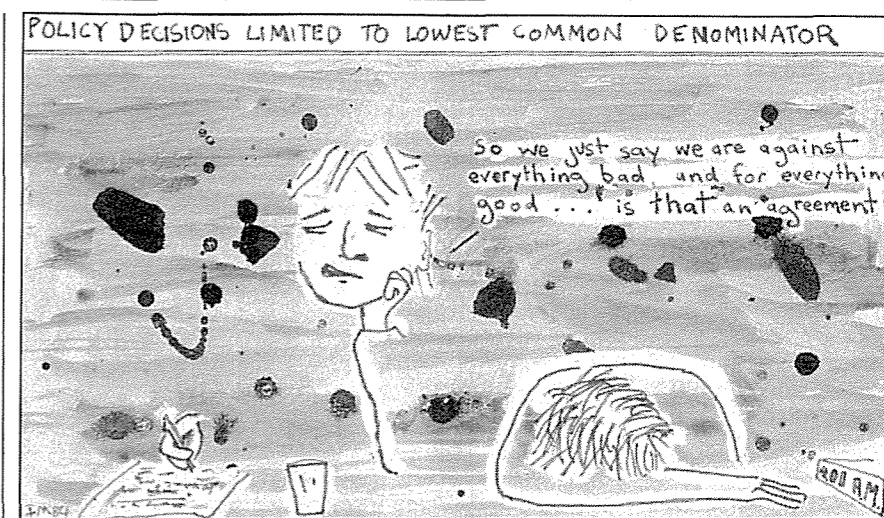 POLICY DECISIONS LIMITED TO LOWEST COMMON DENOMINATOR
So we just say we are against
everything bad, and for everythin
good ... is that an agreement
4:00 A.M.